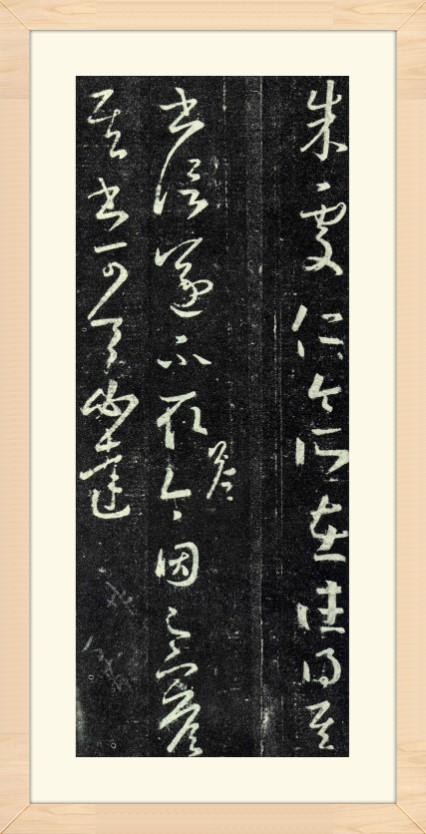 朱处仁今所在往得其
书信遂不取答今因足下答
其书可令必达